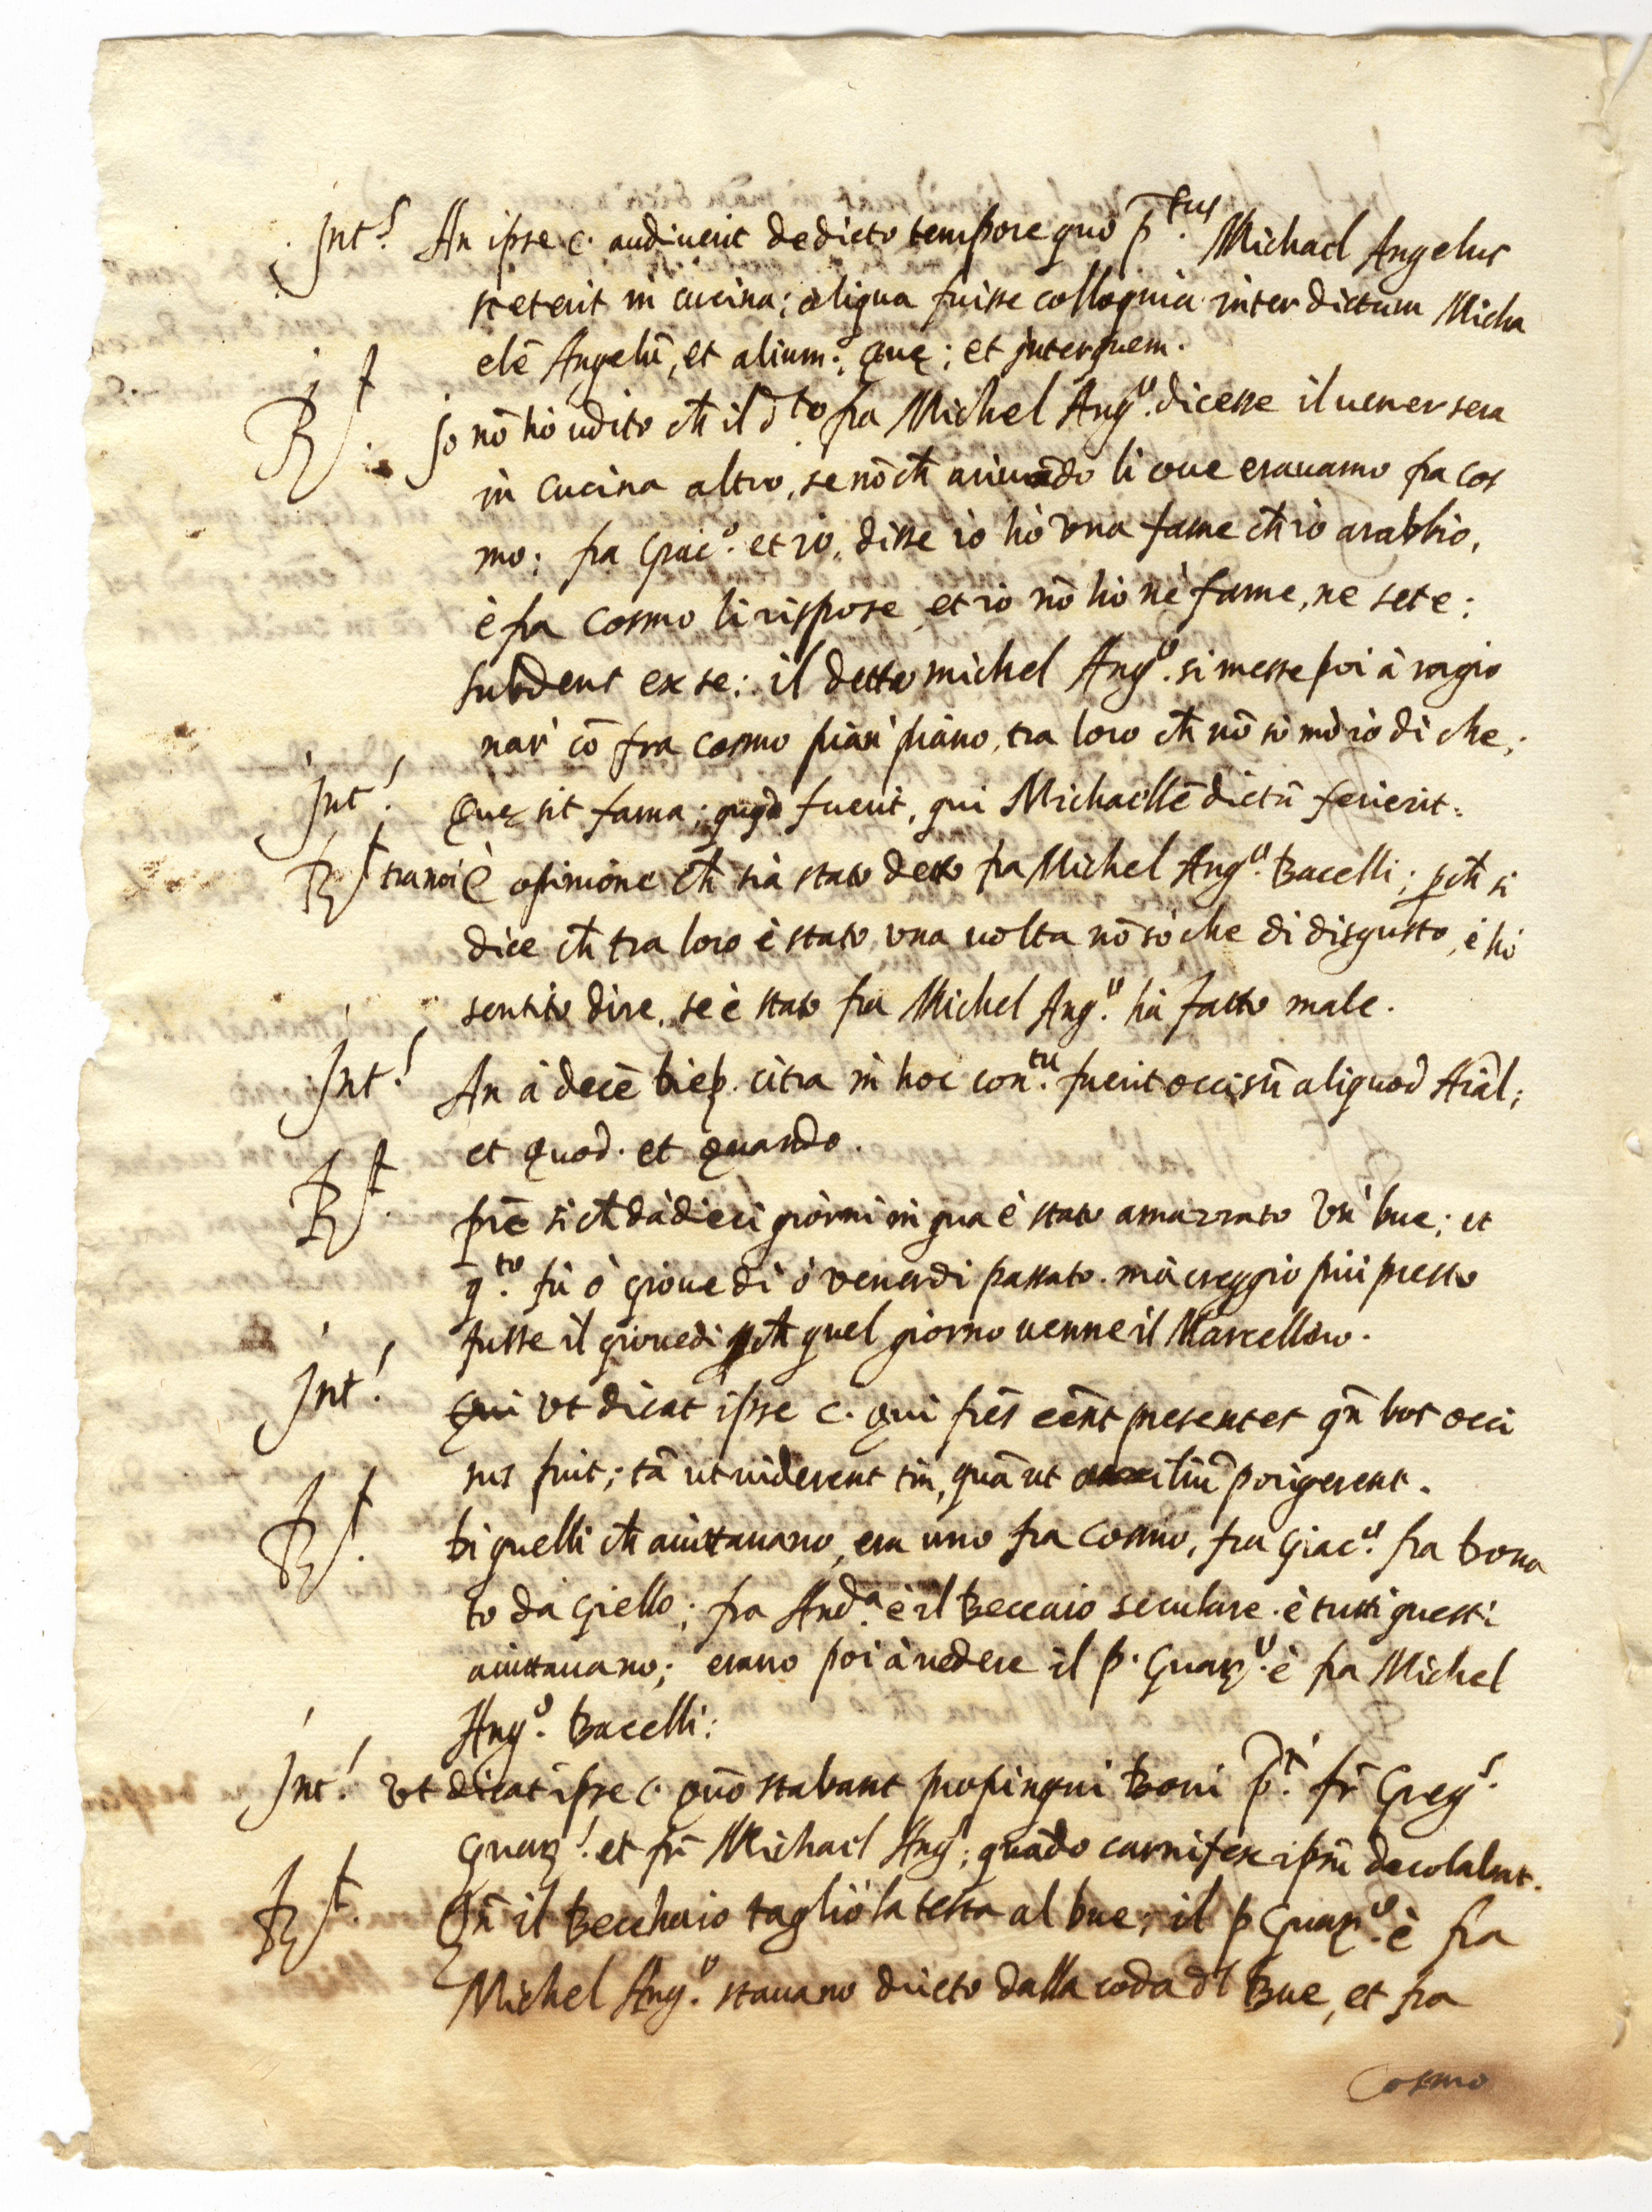 Int.s An ipse c. audiuerit de dicto tempore quo p.tus Michael Angelus
steterit in cucina; aliqua fuisse colloquia inter dictum Micha
elē Angelū, et alium; quę; et inter quem.
R.t Io nō hò udito ch il d.to fra Michel Ang.o dicesse il uener sera
in cucina altro, se nō ch ariuādo li oue erauamo fra Cos
mo; fra Giac.o et io, disse io hò una fame ch io arabbio,
è fra Cosmo li rispose et io nō hò nè fame, ne sete;
subdens ex se: il detto michel Ang.o si messe poi à ragio
nar' cō fra Cosmo pian' piano, tra loro ch nō sò mò io di che;
Int.s Que sit fama; quod fuerit, qui Michaellē dictū ferierit.
R.t tra noi è opinione ch sia stato detto fra Michel Ang.o Bacelli; pch si
dice ch tra loro è stato una uolta nō sò che di disgusto, è hò
sentito dire, se è stato fra Michel Ang.o hà fatto male.
Int.s An à decē dieb. citra in hoc con.tu fuerit occisū aliquod Aīal;
et quod. et quando.
R.t prē si ch dà dieci giorni in qua è stato amazzato un' bue; et
q.to fù ò giouedi ò venerdi passato. mà creggio più presto
fusse il giouedi pch quel giorno uenne il Marcellino.
Int.s Qui ut dicat ipse c. qui frēs eēnt presentes qn̄ bos occi
sus fuit; tā ut uiderent tm̄, quā ut auxiliū porigerent.
R.t Di quelli ch aiuttauano, era uno fra Cosmo, fra Giac.o fra Dona
to da Giello; fra And.a è il Beccaio seculare. è tutti questi
aiuttauano; erano poi à uedere il p. Guar.o è fra Michel
Ang.o Bacelli:
Int.s ut dicat ipse c. quō stabant propinqui Boui p.ti fr̄ Greg.s
Guar.s et fr̄ Michael Ang.s; quādo carnifex ipsū decolabat.
R.t Qn̄ il Becchaio tagliò la testa al bue; il p Guar.o è fra
Michel Ang.o stauano drieto dalla coda dl Bue, et fra
Cosmo